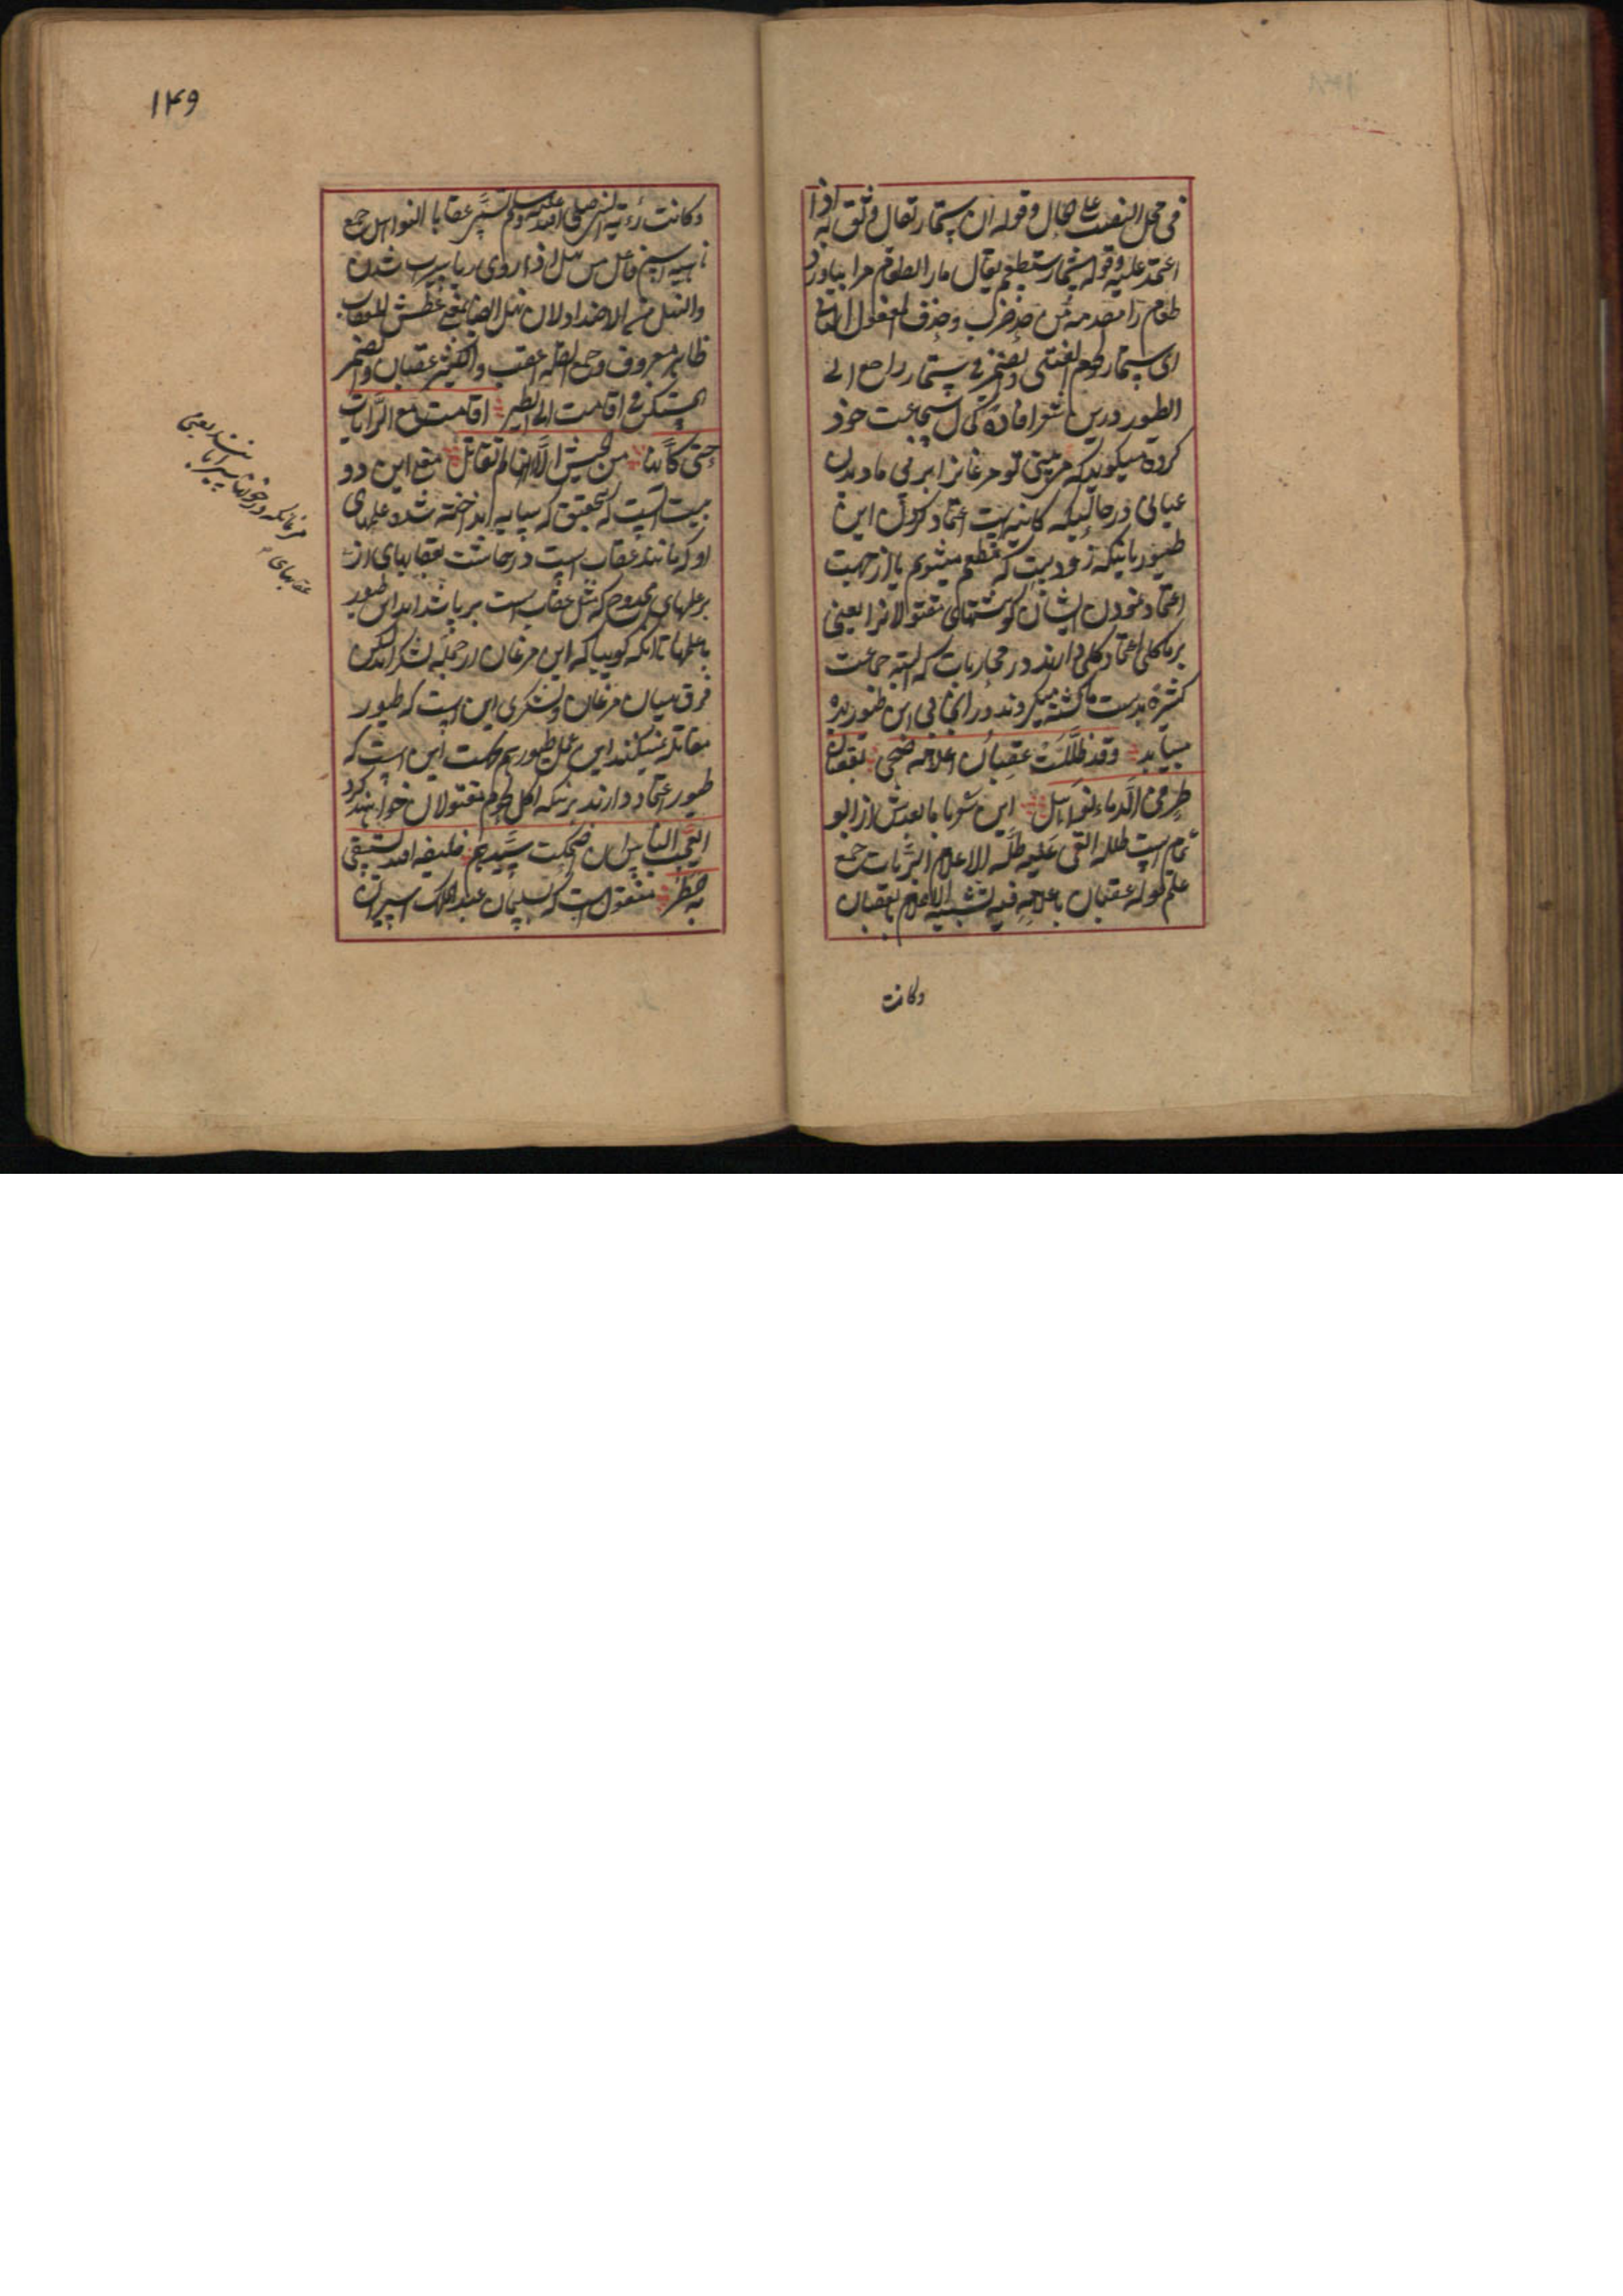 فی محل النصب علی الحال وقوله ان ستمار تقال وثق به اذا
اعتمد علیه وقوله ستمار ستطعم یقال مار الطعام مرا بیاورد
طعام را مصدره من حد ضرب وحذف المفعول الثانی
ای ستمار لحوم القتلی والضمیر فی ستمار راجع الی
الطیور درین شعر افاده کمال شجاعت خود
کرده میکوید که می بینی تو مرغانرا بر پی ما دیدن
عیانی در حالیکه کاینست اعتماد کردن این
طیور باینکه زودیست که مطعم میشویم یا از جهت
اعتماد نمودن ایشان کوشتهای مقتولانرا یعنی
بر ما کلی اعتماد کلی دارند در محاربات که البته جماعت
کثیره بدست ما کشته میکردند و از این پی این طیور دیده
میآید وقد ظللت عقبان اعلامه ضحی بعقبان
طیر فی الدماء نواهل این شعر با ما بعدش از ابو
تمام است ظلله القی علیه ظله الاعلام الرایات جمع
علم قوله عقبان اعلامه فیه تشبیه الاعلام بالعقبان
وکانت
۱۴۹
وکانت رایة النبی صلی الله علیه وسلم تسمی عقابا النواهل جمع
ناهلة اسم فاعل من نهل اذا روی سیراب شدن
والنهل من الاضداد لان نهل ایضا بمعنی عطش العقاب
طایر معروف وجمع القلة اعقب والکثیر عقبان والضمیر
المستکن فی اقامت الی الطیر اقامت مع الرایات
حتی کانها من الجیش الا انها لم تقاتل معنی این دو
بیت آنست که بتحقیق که سایه انداخته شده علمهای
او که مانند عقاب است در چاشت بعقابهای از
بر علمهای ممدوح که مثل عقاب است بر پا شده اند این طیور
با علمها تا آنکه کوییا که این مرغان از جمله لشکر اند لیکن
فرق میان مرغان ولشکری این است که طیور
مقاتله نمیکنند این عمل طیور هم حکمت این است که
طیور اعتماد دارند بر آنکه اکل لحوم مقتولان خواهند کرد
ایعجب الناس ان اضحکت سیدهم خلیفة الله یستسقی
به المطر منقول است که سلیمان عبد الملک اسیران
مرغانیکه در خونها سیرابانند یعنی
عقابهای